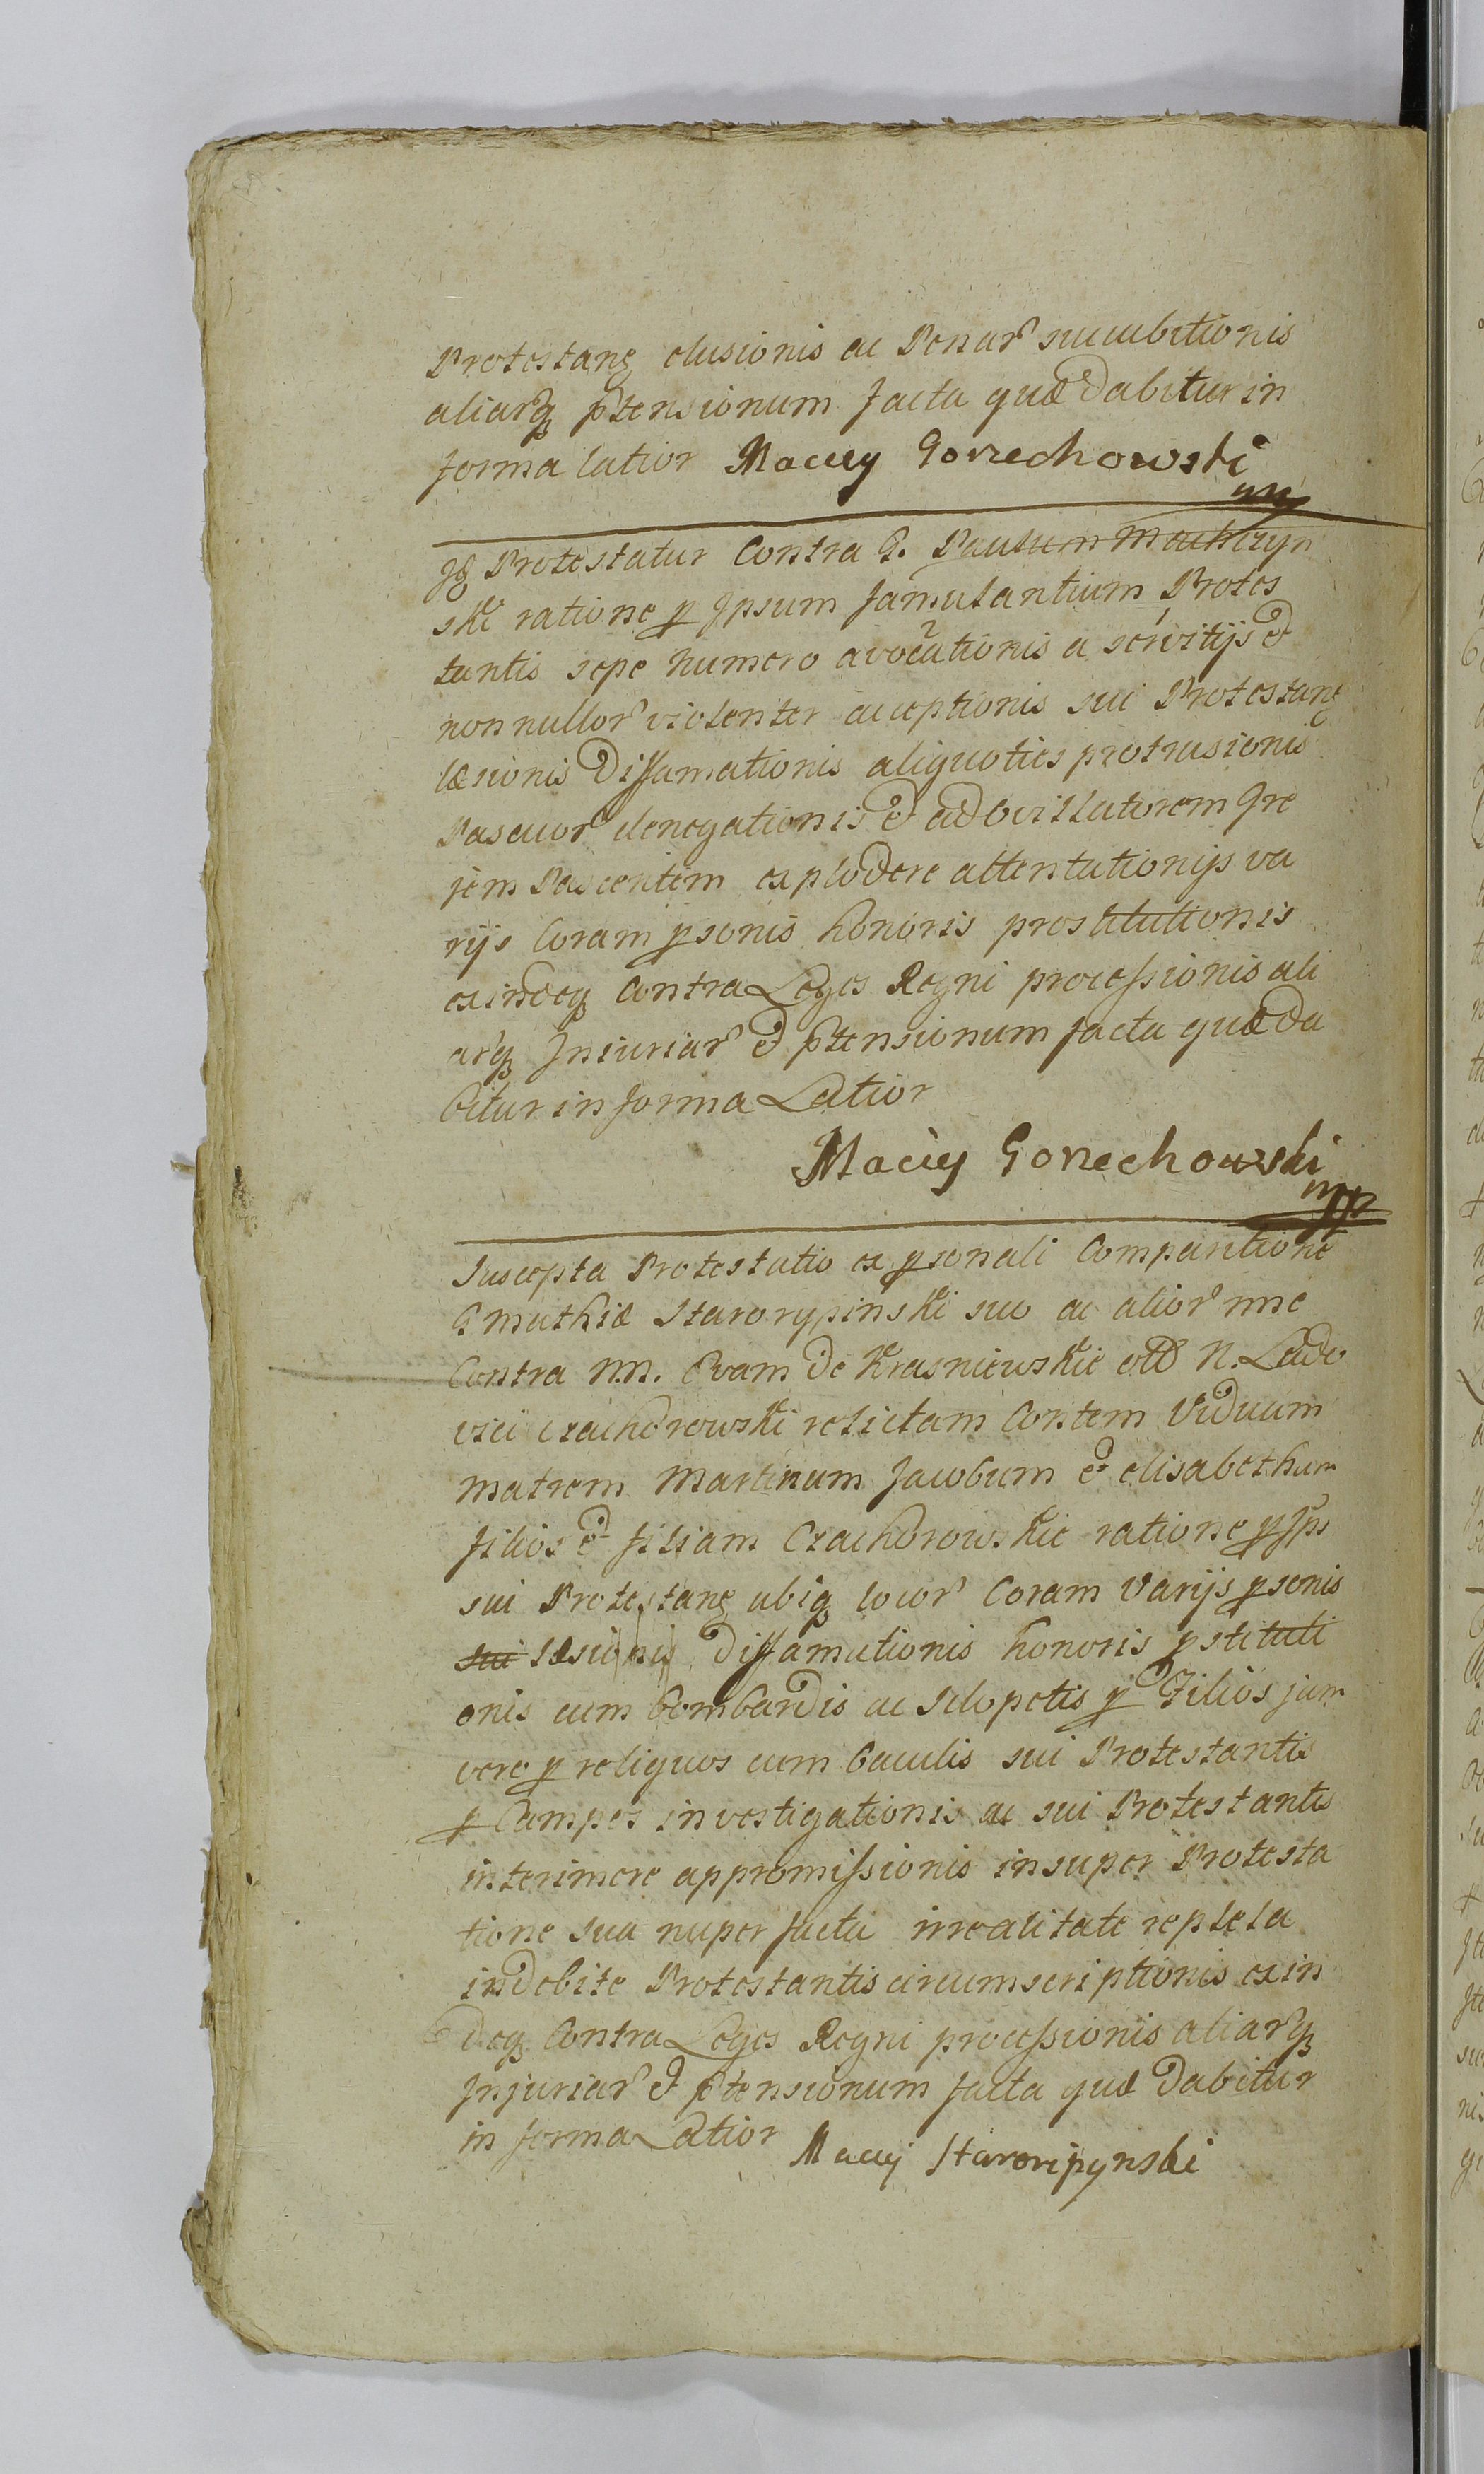 Protestang elusionis ac Penar succubitionis
aliarq ptensionum facta quæ dabitur in
forma latior Maciey Gorzechowski
mp
Jd Protestatur Contra G. Paulum Machczyn
ski ratione p Ipsum famulantium Protes
tantis sepe numero avocationis a servitijs et
non nullor violenter acceptionis sui Protestang
læsionis Diffamationis aliquoties protrusionis
Pascuor denegationis et ad Opillatorem Gre
jem Pascentem explodere attentationijs va
rijs Coram psonis honoris prostitutionis
exindeq Contra Leges Regni processionis ali
arq Injuriar et ptensionum facta quæ da
bitur in forma Latior
Maciey Gorzechowski
mpp
Suscepta Protestatio ex psonali Comparitione
G Mathiæ Starorypinski suo ac alior nne
Contra NN. Evam de Krasniewskie olt N. Lado
vici Czachorowski relictam Contem Viduam
matrem Martinum Jacobum et elisabetham
filios et filiam Czachorowskie ratione p Ips
sui Protestang ubiq locor Coram Varijs psonis
sui læsionis diffamationis honoris pstituti
onis cum bombardis ac sclopetis p Filios jam
vero p reliquos cum baculis sui Protestantis
p Campos investigationis ac sui Protestantis
interimere appromissionis insuper Protesta
tione sua nuper facta irrealitate repleta
indebite Protestantis circumscriptionis exin
deq Contra Leges Regni processionis aliarq
Injuriar et ptensionum facta quæ dabitur
in forma Latior Maciej Staroripynski